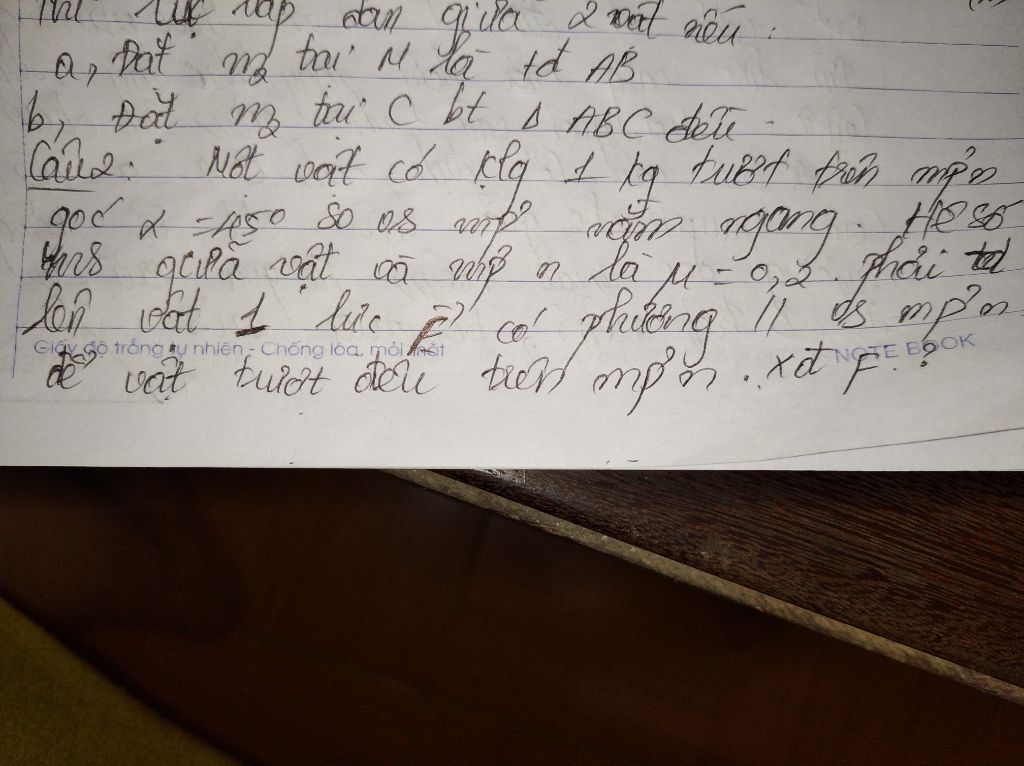 Thì lực hấp dẫn giữa 2 vật nếu :
a, Đặt m2 tại M là tđ AB
b, Đặt m2 tại C bt Δ ABC đều.
Câu 2: Một vật có klg 1 kg trượt trên mpn
góc α = 45° so vs mp nằm ngang. Hệ số
ms giữa vật và mp n là μ = 0,2. phải td
lên vật 1 lực F có phương // vs mpn
Giấy độ trắng tự nhiên - Chống lóa, mỏi mắt NOTE BOOK
để vật trượt đều trên mpn. xđ F ?